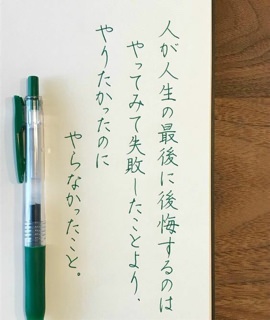 人が人生の最後に後悔するのは
やってみて失敗したことより、
やりたかったのに
やらなかったこと。